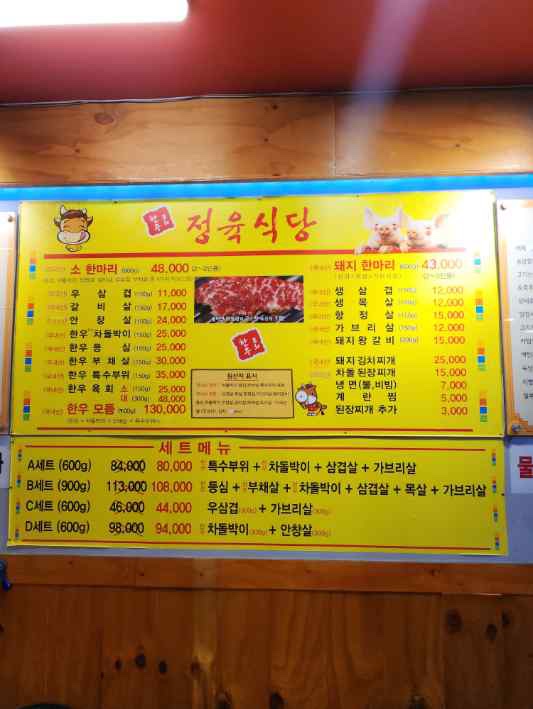 정육식당
소 한마리 (600g) 48,000 (2~3인용)
우 삼 겹 (150g) 11,000
갈 비 살 (150g) 17,000
안 창 살 (100g) 24,000
한우 차돌박이 (150g) 25,000
한우 등 심 (150g) 25,000
한우 부 채 살 (150g) 30,000
한우 특수부위 (150g) 35,000
한우 육 회 소 (150g) 25,000
대 (300g) 48,000
한우 모듬 (600g) 130,000
원산지 표시
돼지 한마리 (600g) 43,000
(2~3인용)
생 삼 겹 12,000
생 목 살 12,000
항 정 살 15,000
가 브 리 살 12,000
돼지 왕 갈 비 15,000
돼지김치찌개 25,000
차돌 된장찌개 15,000
냉 면 (물,비빔) 7,000
계 란 찜 5,000
된장찌개 추가 3,000
세 트 메 뉴
A세트 (600g) 84,000 80,000 특수부위 + 차돌박이 + 삼겹살 + 가브리살
B세트 (900g) 113,000 108,000 등심 + 부채살 + 차돌박이 + 삼겹살 + 목살 + 가브리살
C세트 (600g) 46,000 44,000 우삼겹(300g) + 가브리살(300g)
D세트 (600g) 98,000 94,000 차돌박이(300g) + 안창살(300g)
물